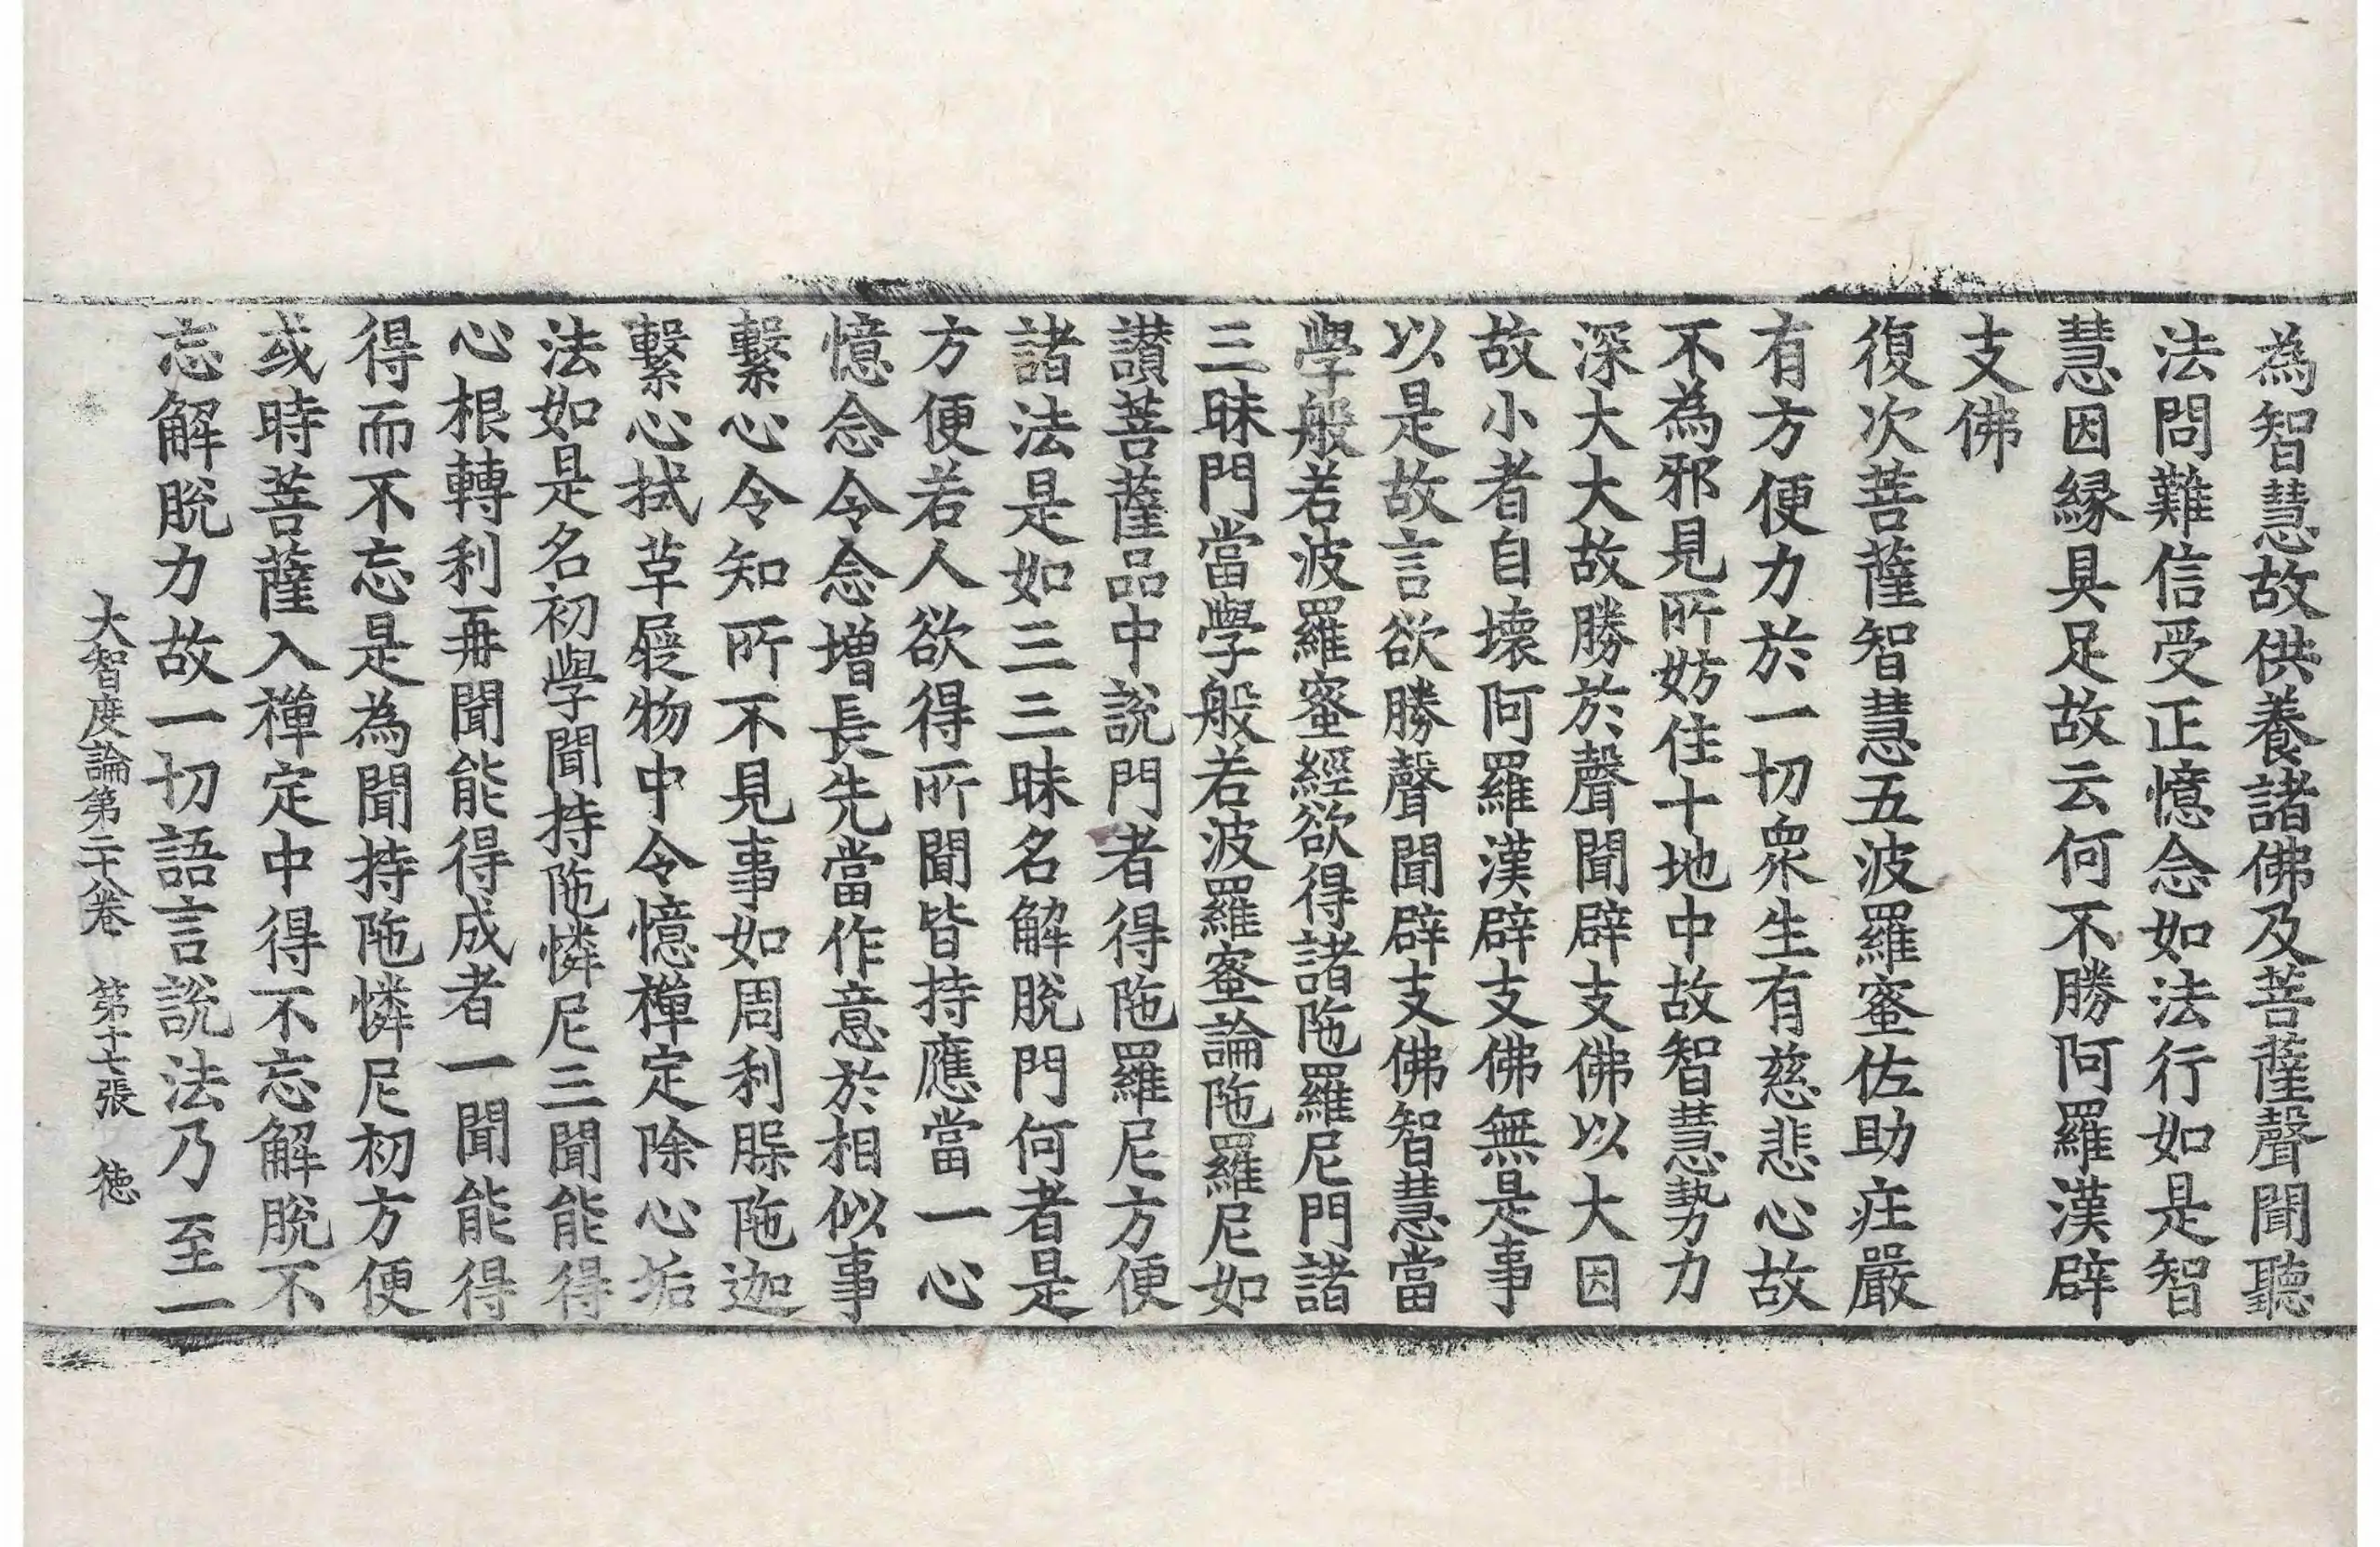 為智慧故供養諸佛及菩薩聲聞聽
法問難信受正憶念如法行如是智
慧因縁具足故云何不勝阿羅漢辟
支佛
復次菩薩智慧五波羅蜜佐助疰嚴
有方便力於一切衆生有慈悲心故
不為邪見所妨住十地中故智慧勢力
深大大故勝於聲聞辟支佛以大因
故小者自壞阿羅漢辟支佛無是事
以是故言欲勝聲聞辟支佛智慧當
學般若波羅蜜經欲得諸陁羅尼門諸
三昧門當學般若波羅蜜論陁羅尼如
讃菩薩品中說門者得陁羅尼方便
諸法是如三三昧名解脫門何者是
方便若人欲得所聞皆持應當一心
憶念令念增長先當作意於相似事
繫心令知所不見事如周利腂陁迦
繫心拭革屣物中令憶禪定除心垢
法如是名初學聞持陁憐尼三聞能得
心根轉利再聞能得成者一聞能得
得而不忘是為聞持陁憐尼初方便
或時菩薩入禪定中得不忘解脫不
忘解脫力故一切語言說法乃至一
大智度論第二十八卷 第十七張 徳